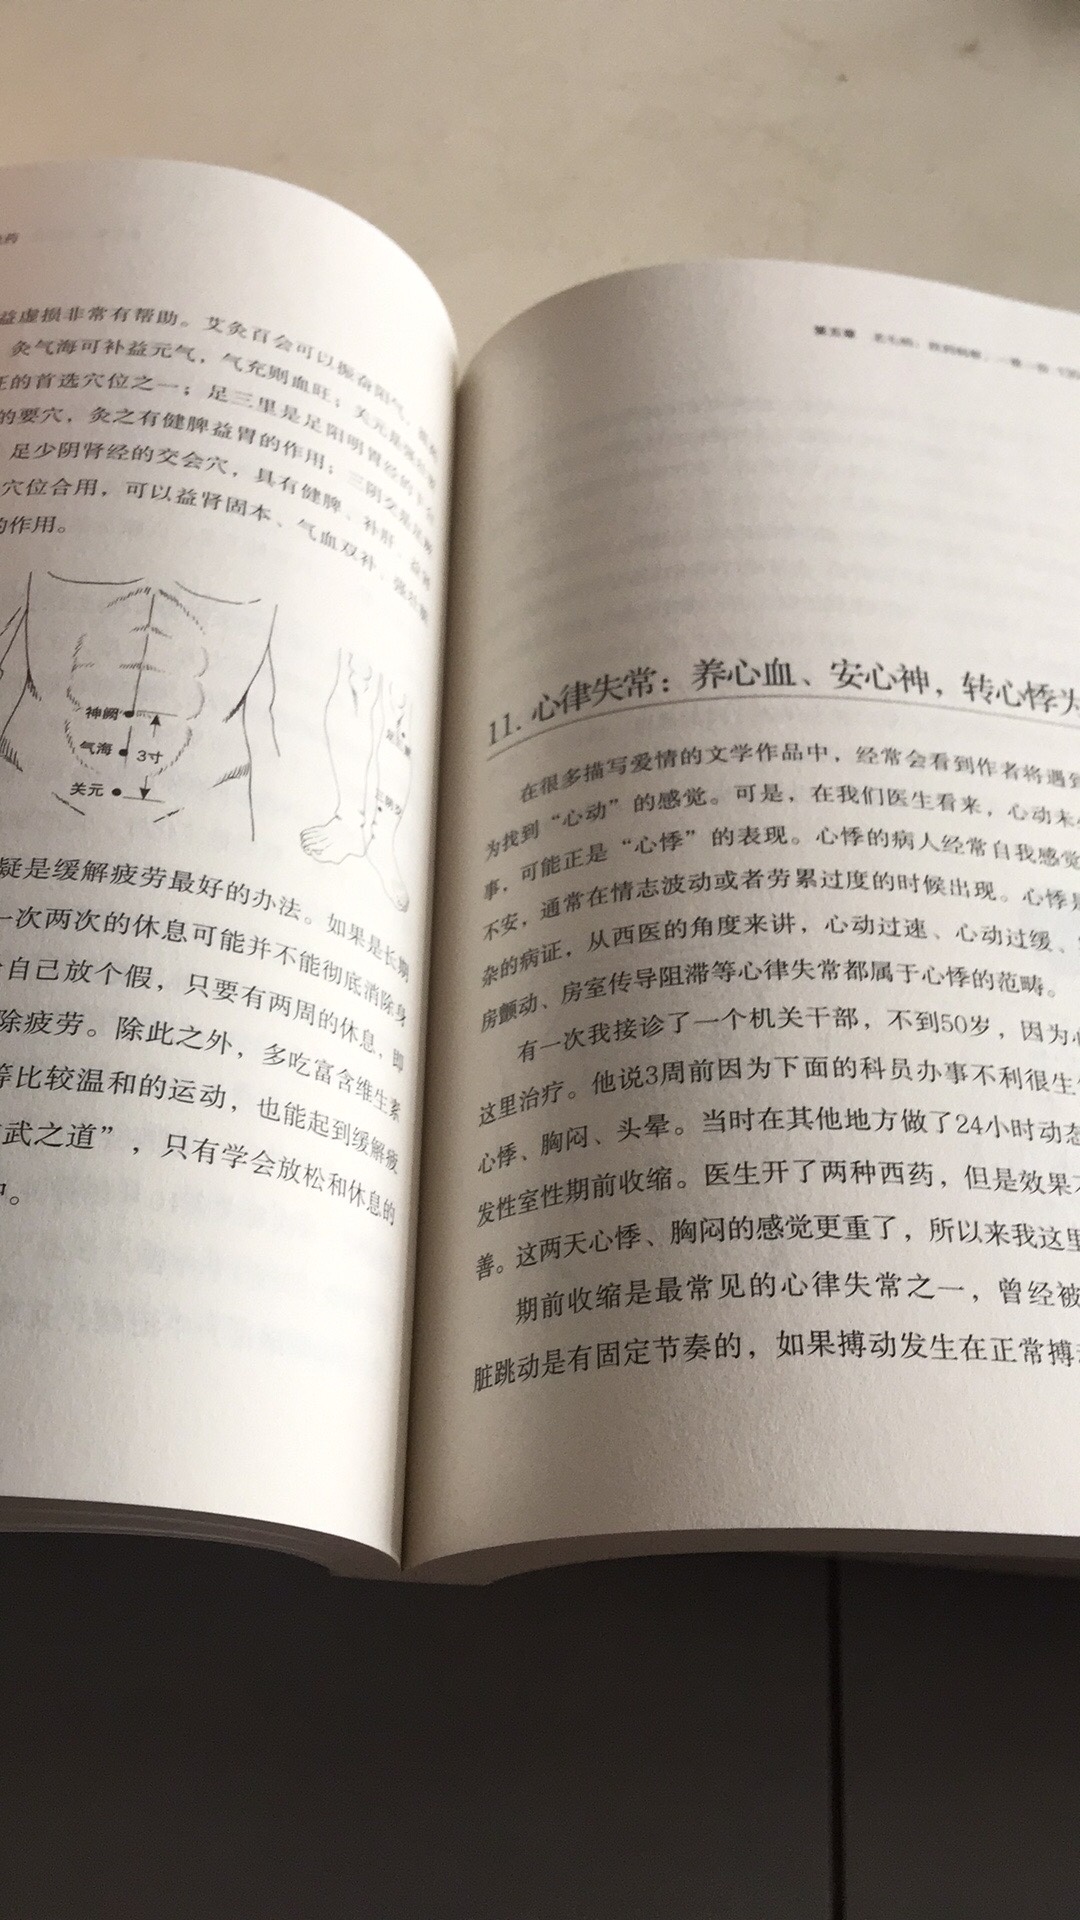 益虚损非常有帮助。艾灸百会可以振奋阳气，
灸气海可补益元气，气充则血旺；关元是
旺的首选穴位之一；足三里是足阳明胃经的
的要穴，灸之有健脾益胃的作用；三阴交是
足少阴肾经的交会穴，具有健脾、补肝、
穴位合用，可以益肾固本、气血双补、
的作用。
神阙
气海 3寸
关元
三阴交
疑是缓解疲劳最好的办法。如果是长期
一次两次的休息可能并不能彻底消除身
自己放个假，只要有两周的休息，即
除疲劳。除此之外，多吃富含维生素
等比较温和的运动，也能起到缓解疲
武之道”，只有学会放松和休息的
。
第五章
11. 心律失常：养心血、安心神，转心悸为
在很多描写爱情的文学作品中，经常会看到作者将遇到
为找到“心动”的感觉。可是，在我们医生看来，心动未
事，可能正是“心悸”的表现。心悸的病人经常自我感觉
不安，通常在情志波动或者劳累过度的时候出现。心悸是
杂的病证，从西医的角度来讲，心动过速、心动过缓、
房颤动、房室传导阻滞等心律失常都属于心悸的范畴。
有一次我接诊了一个机关干部，不到50岁，因为心
这里治疗。他说3周前因为下面的科员办事不利很生
心悸、胸闷、头晕。当时在其他地方做了24小时动态
发性室性期前收缩。医生开了两种西药，但是效果不
善。这两天心悸、胸闷的感觉更重了，所以来我这里
期前收缩是最常见的心律失常之一，曾经被
脏跳动是有固定节奏的，如果搏动发生在正常搏